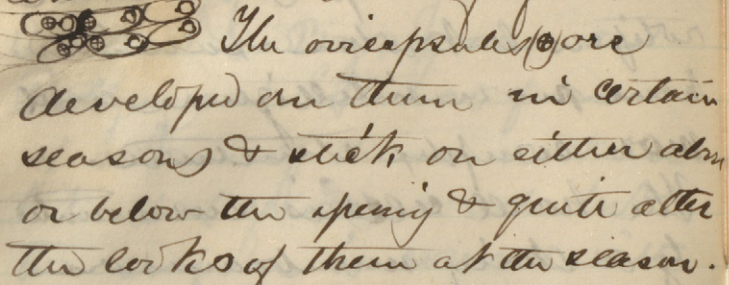 The ovicapsules (⊕) are
developed on them in certain
seasons & stick on either above
or below the opening & quite alter
the looks of them at the season.